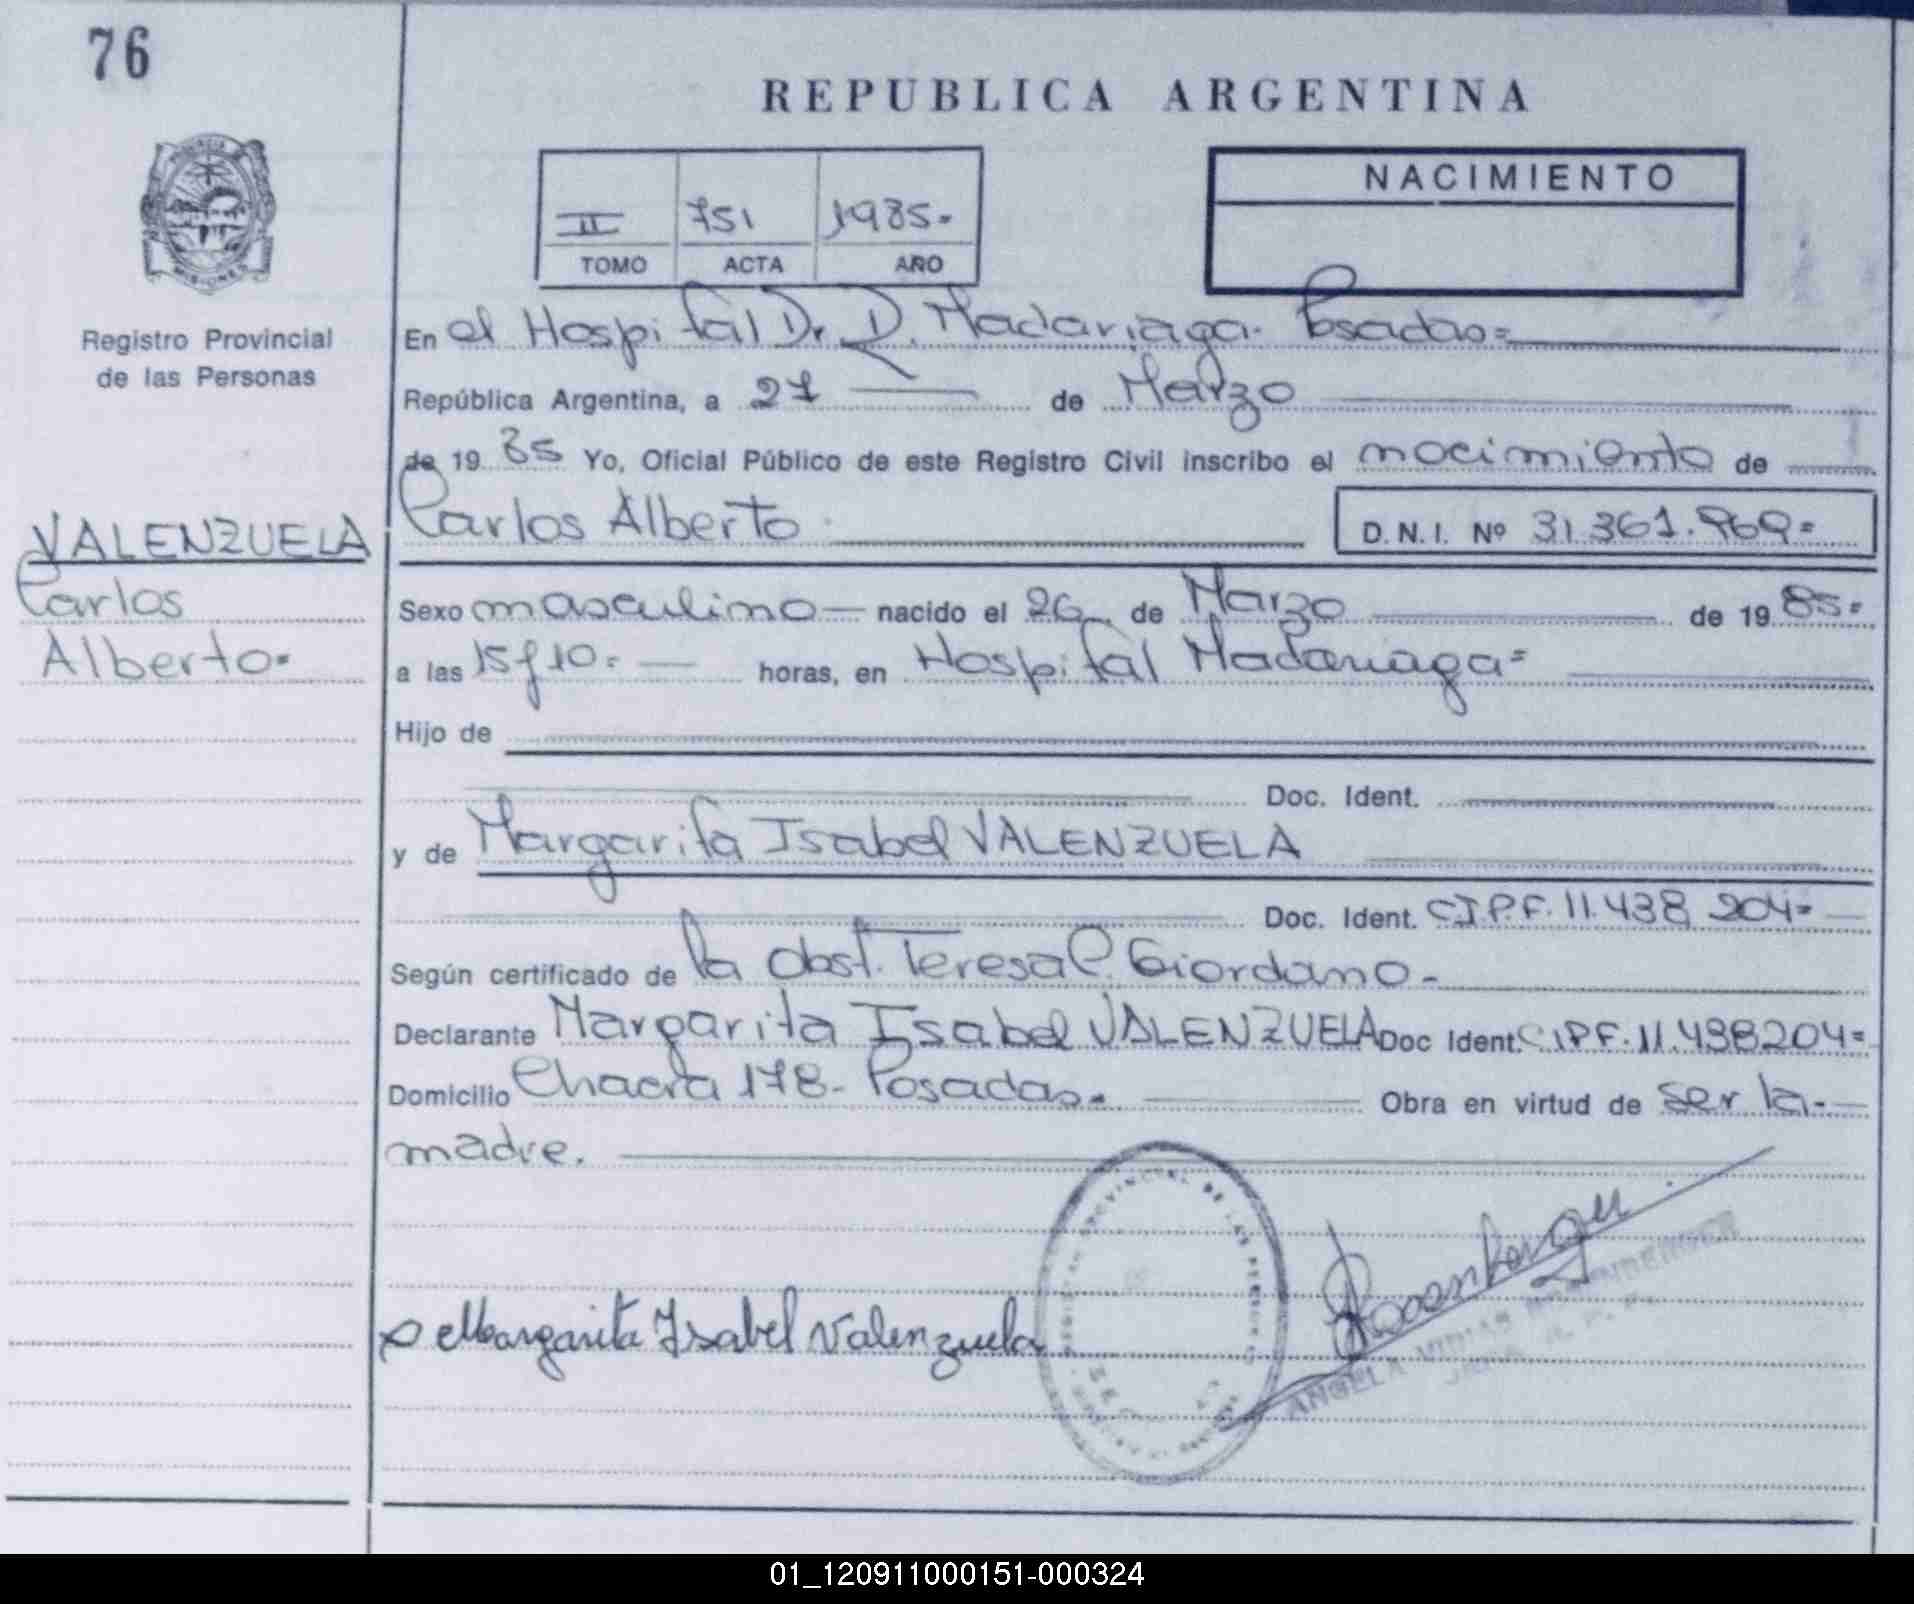 76
REPUBLICA ARGENTINA
NACIMIENTO
II 751 1985.
TOMO ACTA AÑO
Registro Provincial
de las Personas
En el Hospital Dr. D. Madariaga. Posadas=
República Argentina, a 27 de Marzo
de 19 85 Yo, Oficial Público de este Registro Civil inscribo el nacimiento de
VALENZUELA
Carlos
Alberto=
Carlos Alberto
D.N.I. Nº 31.361.969=
Sexo masculino nacido el 26 de Marzo de 19 85=
a las 15 y 10= horas, en Hospital Madariaga=
Hijo de
Doc. Ident.
y de Margarita Isabel VALENZUELA
Doc. Ident. C.I.P.F. 11.438 204=
Según certificado de la obst. Teresa C. Giordano.
Declarante Margarita Isabel VALENZUELA Doc Ident. CIPF. 11.438204=
Domicilio Chacra 178. Posadas.= Obra en virtud de ser la.
madre.
PROVINCIAL DE LAS PERSONAS
Margarita Isabel Valenzuela
ANGELA
01_120911000151-000324